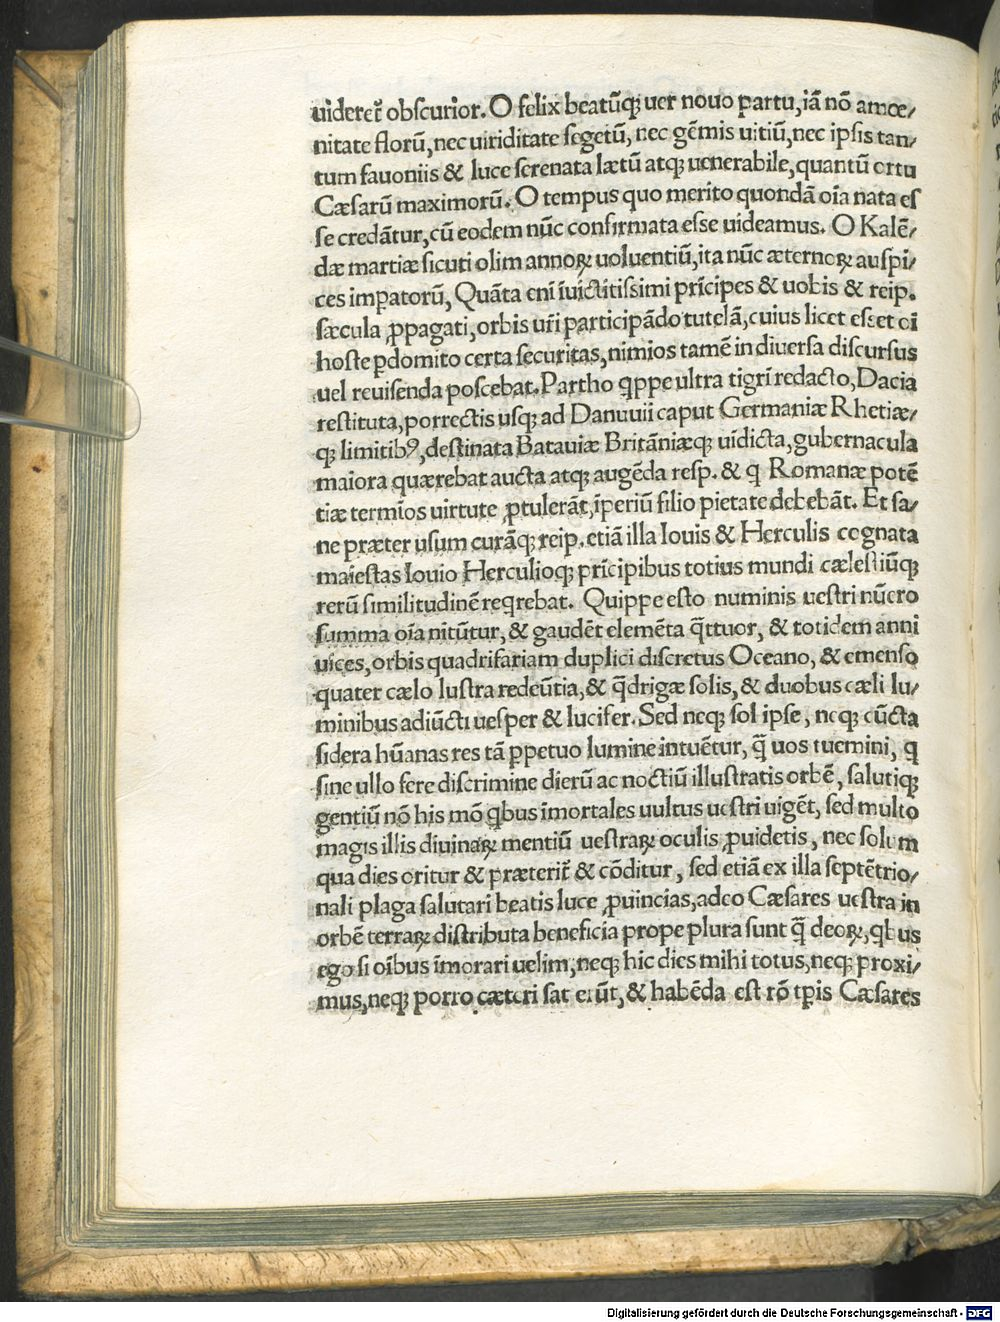 uideret᷑ obscurior. O felix beatũq; uer nouo partu, iã nõ amœ/
nitate florũ, nec uiriditate segetũ, nec gẽmis uitiũ, nec ipsis tan/
tum fauoniis & luce serenata lætũ atq; uenerabile, quantũ ortu
Cæsarũ maximorũ. O tempus quo merito quondã oĩa nata es
se credãtur, cũ eodem nũc confirmata esse uideamus. O Kalẽ/
dæ martiæ sicuti olim annoꝝ uoluentiũ, ita nũc æternoꝝ auspi/
ces impatorũ, Quãta eni ĩuictitissimi prĩcipes & uobis & reip.
sæcula ꝓpagati, orbis ur̃i participãdo tutelã, cuius licet esset oĩ
hoste pdomito certa securitas, nimios tamẽ in diuersa discursus
uel reuisenda poscebat. Partho qppe ultra tigrĩ redacto, Dacia
restituta, porrectis usq; ad Danuuii caput Germaniæ Rhetiæ/
q; limitibꝰ, destinata Batauiæ Britãniæq; uĩdicta, gubernacula
maiora quærebat aucta atq; augẽda resp. & q Romanæ potẽ
tiæ termios uirtute ꝓtulerãt, ĩperiũ filio pietate debebãt. Et sa/
ne præter usum curãq; reip. etiã illa Iouis & Herculis cognata
maiestas Iouio Herculioq; prĩcipibus totius mundi cælestiũq;
rerũ similitudinẽ reqrebat. Quippe esto numinis uestri nũero
summa oĩa nitũtur, & gaudẽt elemẽta q̃ttuor, & totidem anni
uices, orbis quadrifariam duplici discretus Oceano, & emenso
quater cælo lustra redeũtia, & q̃drigæ solis, & duobus cæli lu/
minibus adiũcti uesper & lucifer. Sed neq; sol ipse, neq; cũcta
sidera hũanas res tã ꝑpetuo lumine intuẽtur, q̃ uos tuemini, q
sine ullo fere discrimine dierũ ac noctiũ illustratis orbẽ, salutiq;
gentiũ nõ his mõ qbus ĩmortales uultus uestri uigẽt, sed multo
magis illis diuinaꝝ mentiũ uestraꝝ oculis ꝓuidetis, nec solum
qua dies oritur & præterit᷑ & cõditur, sed etiã ex illa septẽtrio/
nali plaga salutari beatis luce ꝓuincias, adeo Cæsares uestra in
orbẽ terraꝝ distributa beneficia prope plura sunt q̃ deoꝝ, qbus
ego si oĩbus ĩmorari uelim, neq; hic dies mihi totus, neq; proxi/
mus, neq; porro cæteri sat erũt, & habẽda est rõ tꝑis Cæsares
Digitalisierung gefördert durch die Deutsche Forschungsgemeinschaft - DFG